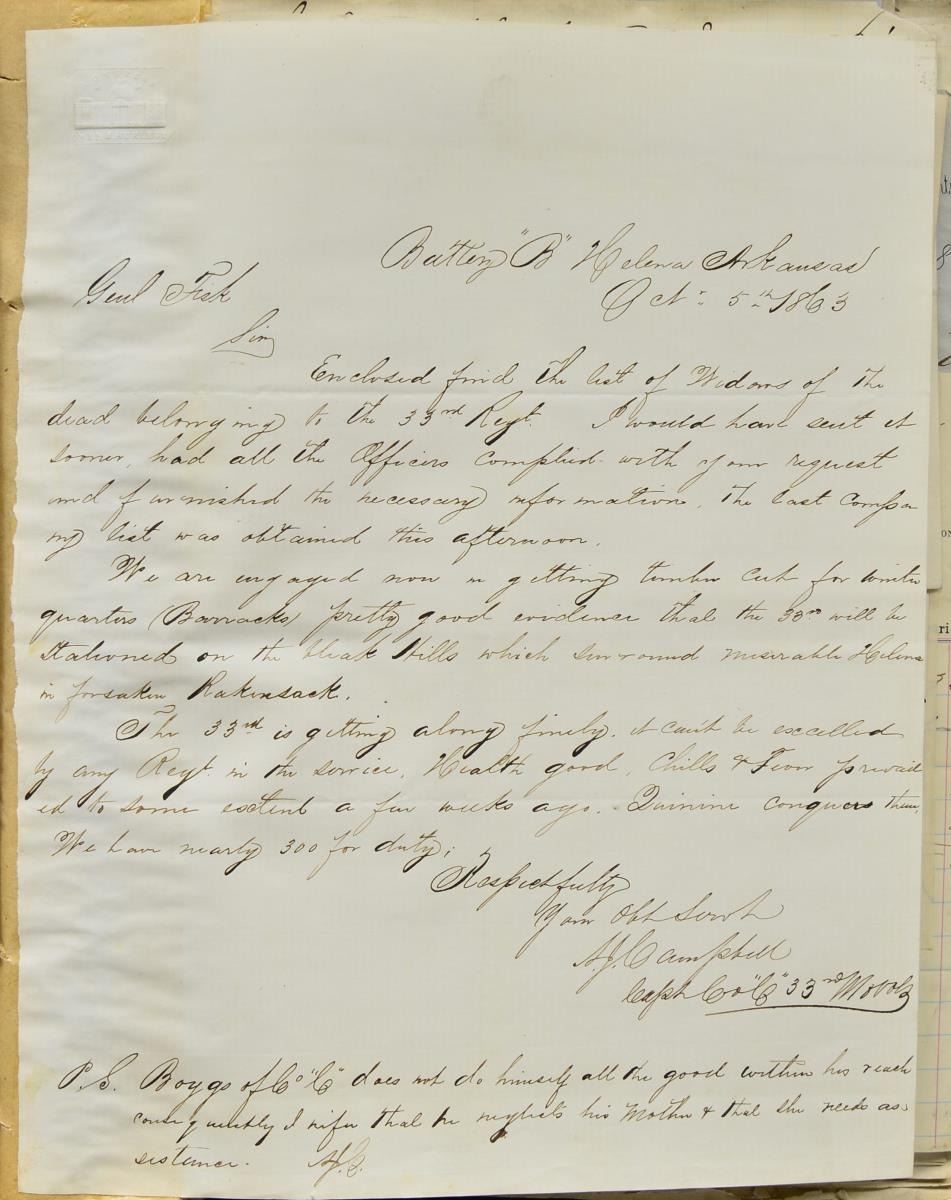 Battery "B" Helena Arkansas
Oct. 5th 1863
Genl Fisk
Sir
Enclosed find the list of Widows of the
dead belonging to the 33rd Regt. I would have sent it
sooner, had all the Officers complied with your request
and furnished the necessary information. The last compa
ny list was obtained this afternoon.
We are engaged now in getting timber cut for winter
quarters (Barracks) pretty good evidence that the 33rd will be
stationed on the bleak Hills which surround miserable Helena
in forsaken Rakensack.
The 33rd is getting along finely. it can't be excelled
by any Regt. in the service. Health good, Chills & Fever prevail
ed to some extent a few weeks ago. Quinine conquers them.
We have nearly 300 for duty;
Respectfully
Your Obt Servt
A.J. Campbell
Capt Co "C" 33rd Mo Vols
P.S. Boggs of Co "C" does not do himself all the good within his reach
consequently I infer that he neglects his Mother & that she needs as
sistance. A.J.C.